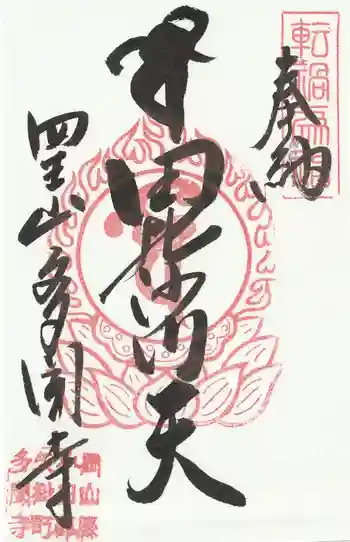 転禍為福
奉納
毘沙門天
四王山多聞寺
岡山縣
多聞寺